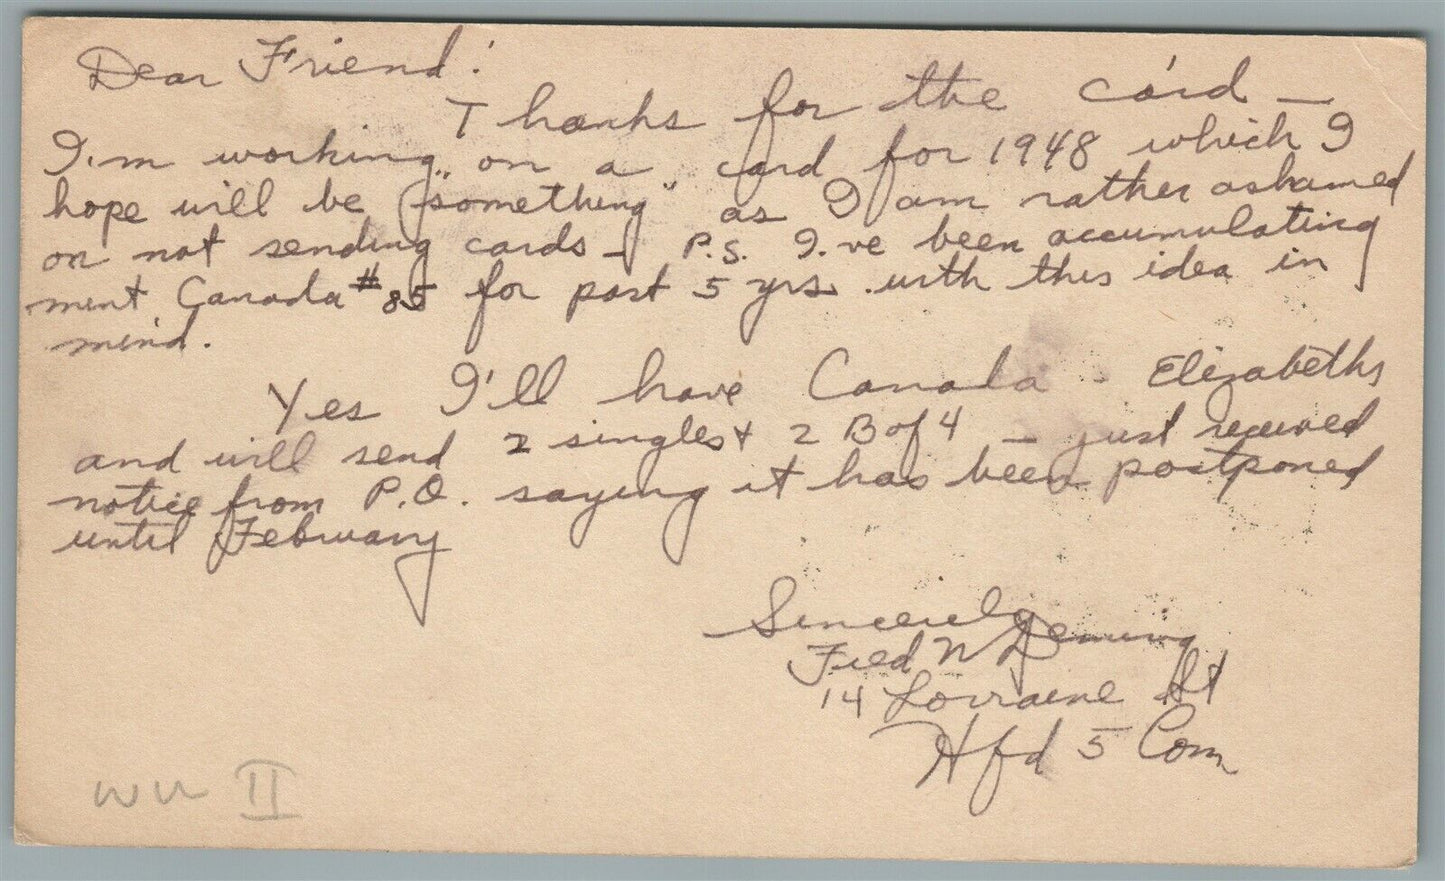 Dear Friend!
Thanks for the card —
I'm working on a card for 1948 which I
hope will be "something" as I am rather ashamed
on not sending cards — P.S. I've been accumulating
mint Canada #85 for past 5 yrs. with this idea in
mind.
Yes I'll have Canada - Elizabeths
and will send 2 singles + 2 B of 4 — just received
notice from P.O. saying it has been postponed
until February
Sincerely
Fred N Deming
14 Lorraine St
Hfd 5 Conn
WW II